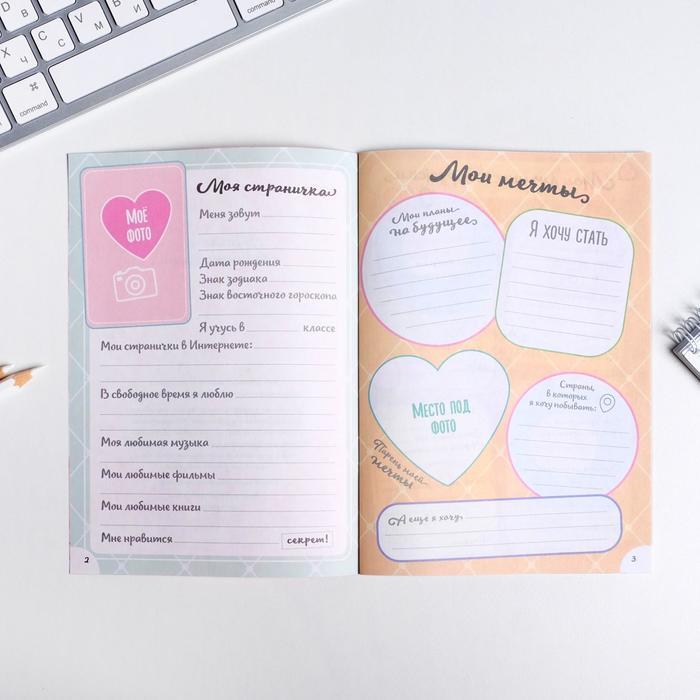 Моё
фото
Моя страничка
Меня зовут
Дата рождения
Знак зодиака
Знак восточного гороскопа
Я учусь в классе
Мои странички в Интернете:
В свободное время я люблю
Моя любимая музыка
Мои любимые фильмы
Мои любимые книги
Мне нравится секрет!
2
Мои мечты
Мои планы
на будущее
Я хочу стать
Место под
фото
Парень моей
мечты
Страны,
в которых
я хочу побывать:
А еще я хочу
3
Ф
Ы
В
Я
Ч
С
М
И
⌘
command
command